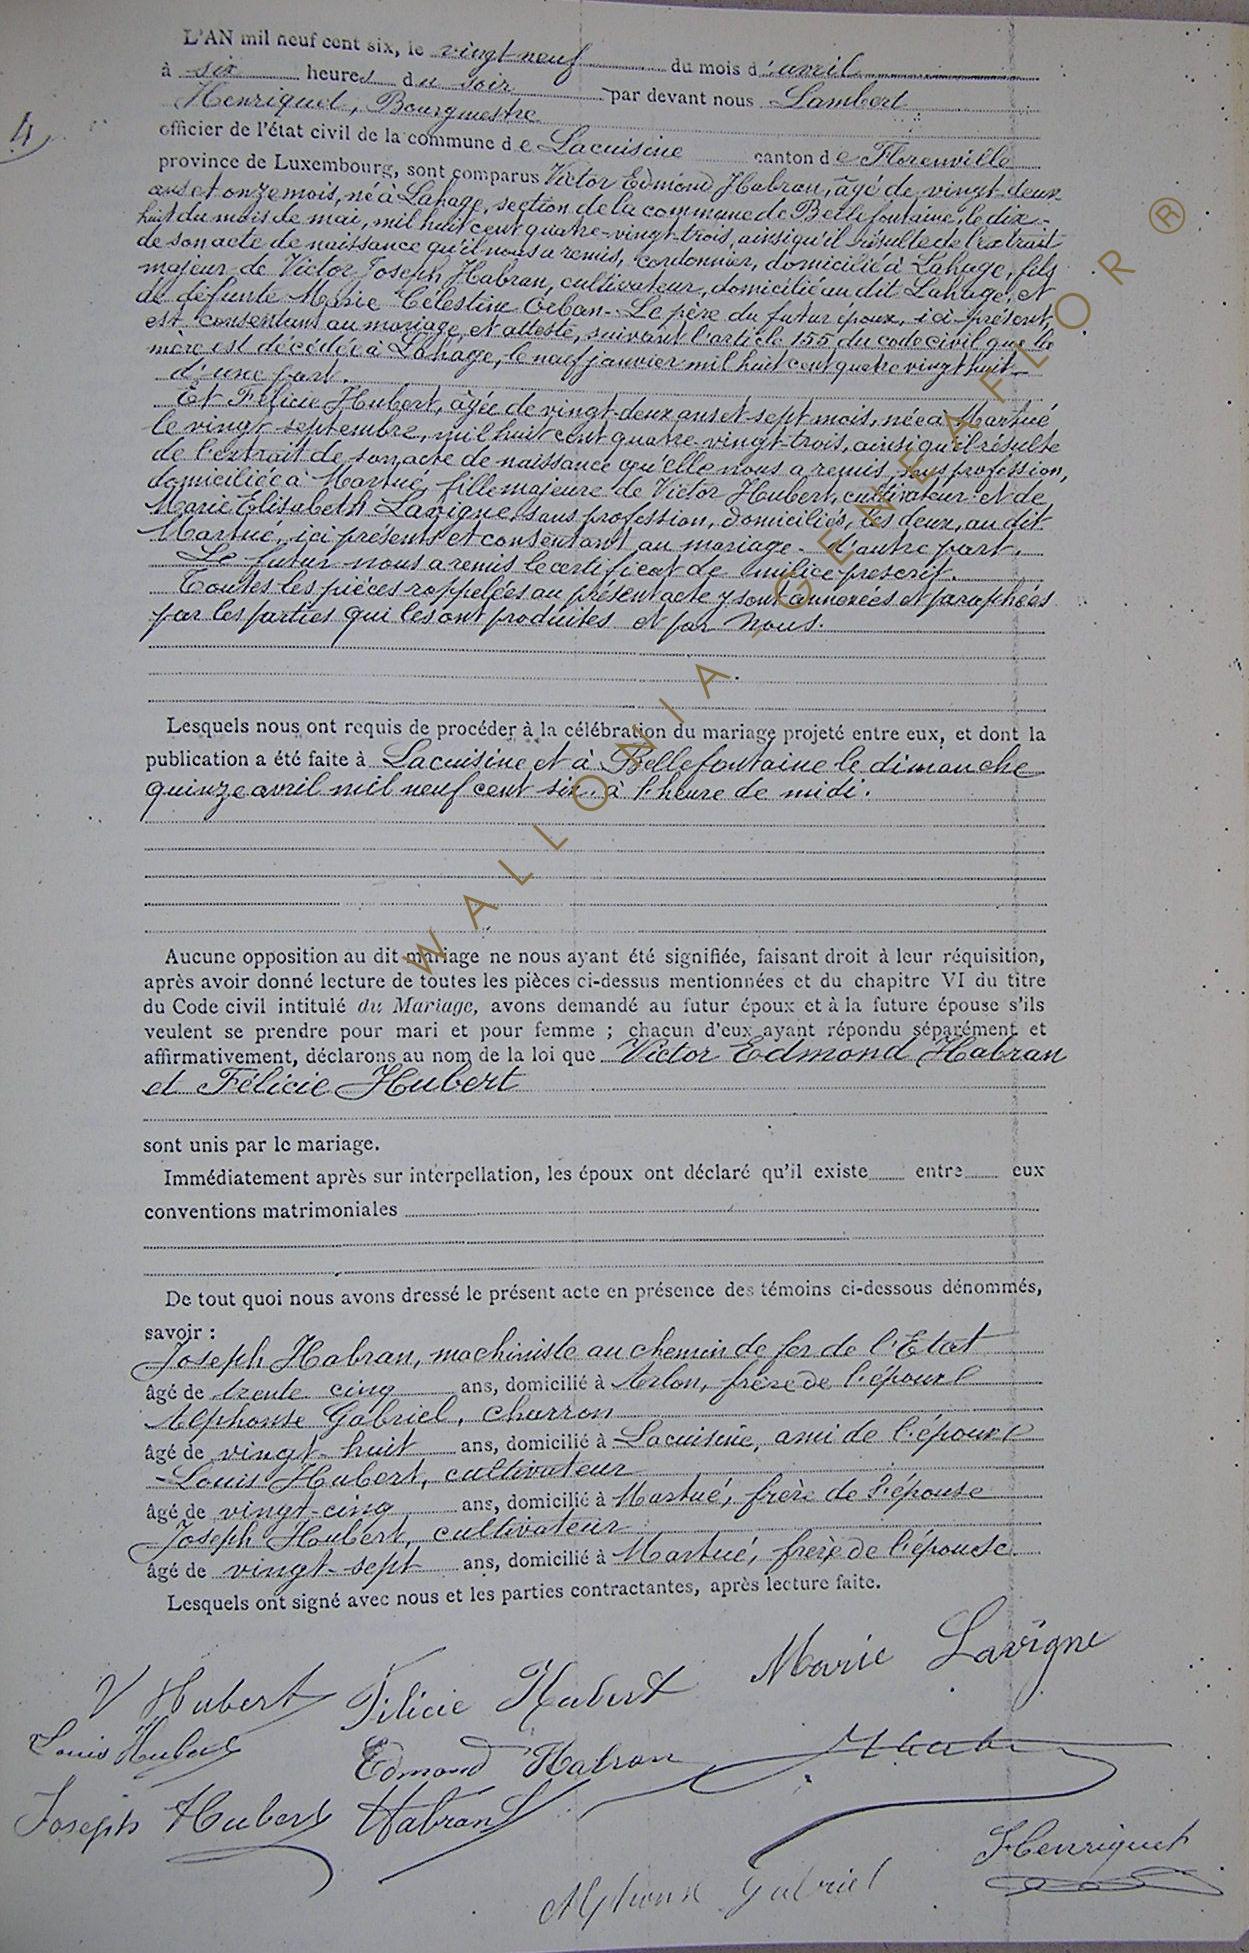 L'AN mil neuf cent six, le vingt-neuf du mois d'avril
à six heures du soir par devant nous Lambert
Henriquet, Bourgmestre
4
officier de l'état civil de la commune de Lacuisine canton de Florenville
province de Luxembourg, sont comparus Victor Edmond Habran, âgé de vingt-deux
ans et onze mois, né à Lahage, section de la commune de Bellefontaine, le dix-
huit du mois de mai, mil huit cent quatre-vingt-trois, ainsi qu'il résulte de l'extrait
de son acte de naissance qu'il nous a remis, cordonnier, domicilié à Lahage, fils
majeur de Victor Joseph Habran, cultivateur, domicilié au dit Lahage, et
de défunte Marie Célestine Orban. Le père du futur époux, ici présent,
est consentant au mariage, et atteste, suivant l'article 155 du code civil que la
mère est décédée à Lahage, le neuf janvier mil huit cent quatre vingt huit
d'une part.
Et Félicie Hubert, âgée de vingt-deux ans et sept mois, née à Martué
le vingt septembre, mil huit cent quatre-vingt-trois, ainsi qu'il résulte
de l'extrait de son acte de naissance qu'elle nous a remis, sans profession,
domiciliée à Martué, fille majeure de Victor Hubert, cultivateur et de
Marie Elisabeth Lavigne, sans profession, domiciliés, les deux, au dit
Martué, ici présents et consentant au mariage. d'autre part.
Le futur nous a remis le certificat de milice prescrit.
Toutes les pièces rappelées au présent acte y sont annexées et paraphées
par les parties qui les ont produites et par nous.
Lesquels nous ont requis de procéder à la célébration du mariage projeté entre eux, et dont la
publication a été faite à Lacuisine et à Bellefontaine le dimanche
quinze avril mil neuf cent six, à l'heure de midi.
Aucune opposition au dit mariage ne nous ayant été signifiée, faisant droit à leur réquisition,
après avoir donné lecture de toutes les pièces ci-dessus mentionnées et du chapitre VI du titre
du Code civil intitulé du Mariage, avons demandé au futur époux et à la future épouse s'ils
veulent se prendre pour mari et pour femme ; chacun d'eux ayant répondu séparément et
affirmativement, déclarons au nom de la loi que Victor Edmond Habran
et Félicie Hubert
sont unis par le mariage.
Immédiatement après sur interpellation, les époux ont déclaré qu'il existe entre eux
conventions matrimoniales
De tout quoi nous avons dressé le présent acte en présence des témoins ci-dessous dénommés,
savoir :
Joseph Habran, machiniste au chemin de fer de l'Etat
âgé de trente cinq ans, domicilié à Arlon, frère de l'époux
Alphonse Gabriel, charron
âgé de vingt-huit ans, domicilié à Lacuisine, ami de l'époux
Louis Hubert, cultivateur
âgé de vingt-cinq ans, domicilié à Martué, frère de l'épouse
Joseph Hubert, cultivateur
âgé de vingt-sept ans, domicilié à Martué, frère de l'épouse.
Lesquels ont signé avec nous et les parties contractantes, après lecture faite.
V Hubert Félicie Hubert Marie Lavigne
Louis Hubert Edmond Habran
Joseph Hubert Habran
Henriquet
Alphonse Gabriel
WALLONIA-GENEAFLOR ®